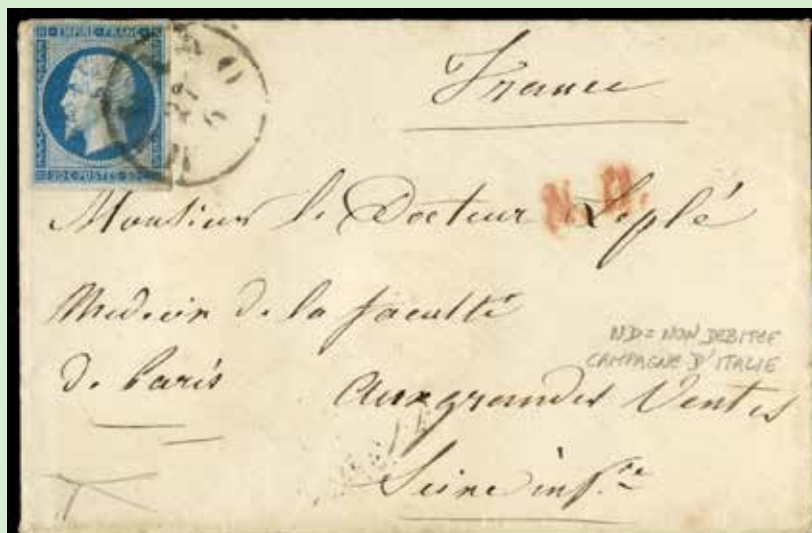 EMPIRE FRANC
20 C POSTES 20 C
France
N.D.
Monsieur le Docteur Leplé
Medecin de la faculté
de Paris
ND = NON DEBITEE
CAMPAGNE D'ITALIE
Aux grandes Ventes
Seine infre